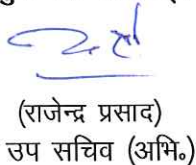 (राजेन्द्र प्रसाद)
उप सचिव (अभि॰)